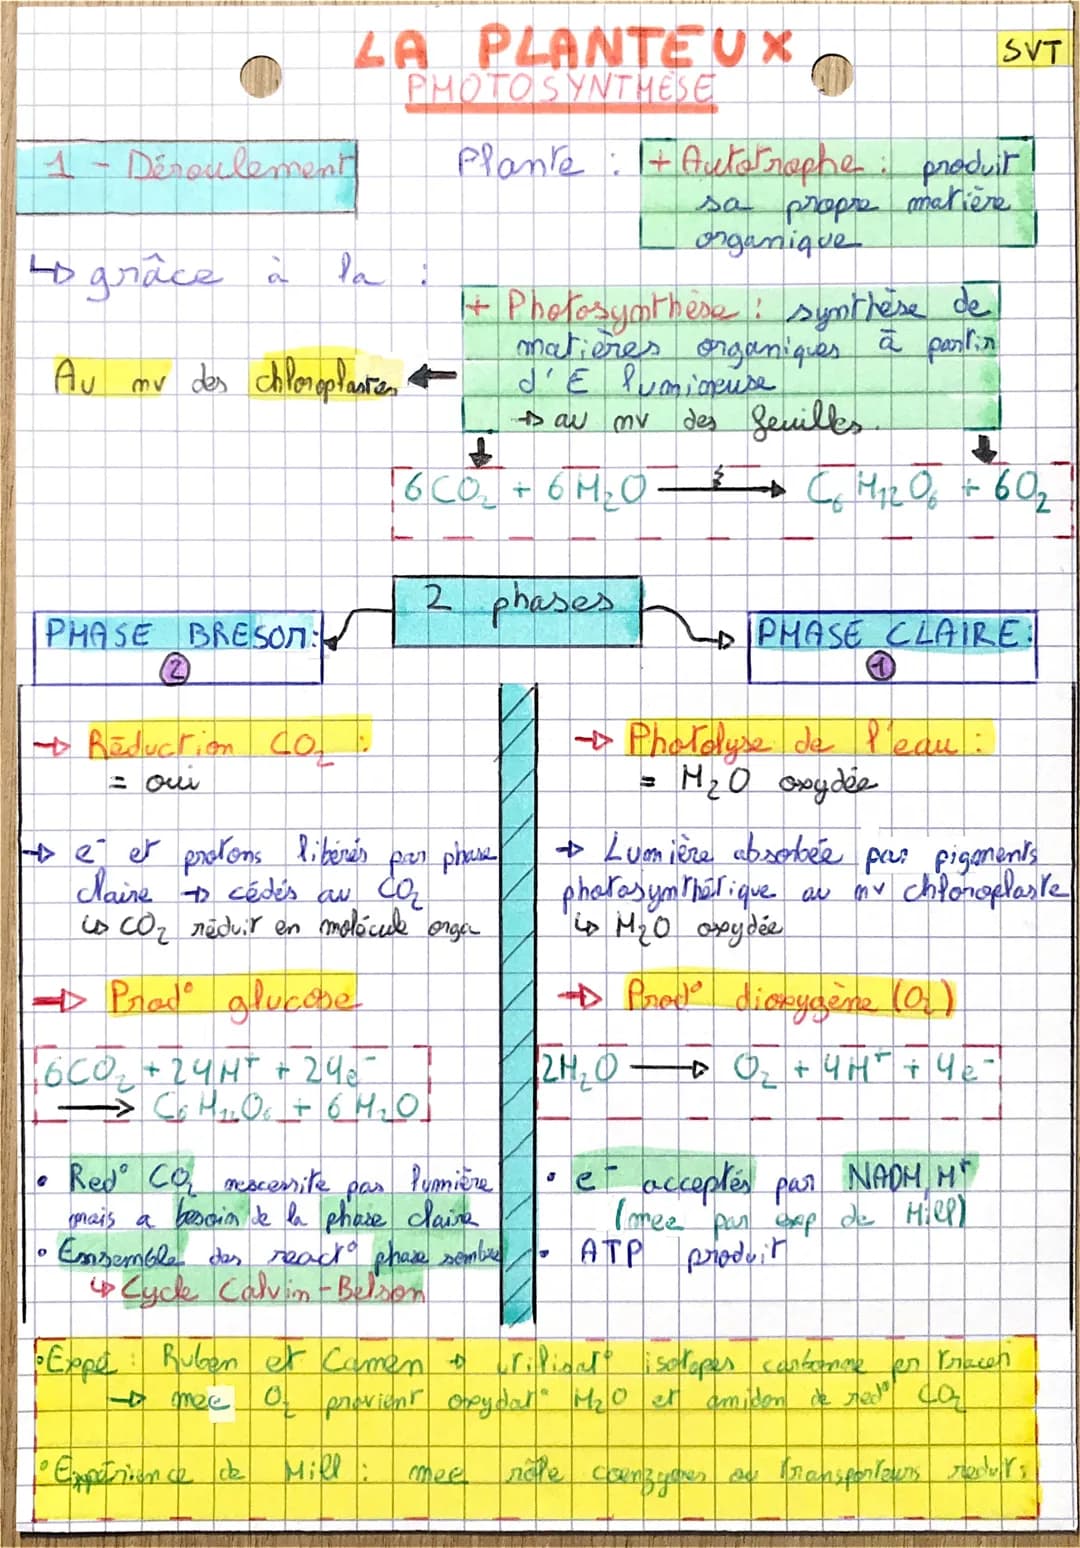 LA PLANTEUX
SVT
PHOTOSYNTHESE
1 - Déroulement
Plante :
+ Autotrophe : produit
sa propre matière
organique
↳ grâce à la :
+ Photosynthèse : synthèse de
matières organiques à partir
d'E lumineuse
→ au nv des feuilles.
Au nv des chloroplastes
6CO2 + 6H2O → C6H12O6 + 6O2
2 phases
PHASE BRESOM:
2
→ Réduction CO2 :
= oui
→ e- et protons libérés par phase
claire → cédés au CO2
↳ CO2 réduit en molécule orga
→ Prod° glucose
6CO2 + 24H+ + 24e-
→ C6H12O6 + 6H2O
• Red° CO2 nescessite pas lumière
mais a besoin de la phase claire
• Ensemble des react° phase sombre
↳ Cycle Calvin-Belson
PHASE CLAIRE:
1
→ Photolyse de l'eau :
= H2O oxydée
→ Lumière absorbée par pigments
photosynthétique au nv chloroplaste
↳ H2O oxydée
→ Prod° dioxygène (O2)
2H2O → O2 + 4H+ + 4e-
• e- acceptés par NADH, H+
(mee par exp de Hill)
• ATP produit
• Expé : Ruben et Camen → utilisat° isotopes carbonne en tracer
→ mee O2 provient oxydat° H2O et amidon de red° CO2
• Expérience de Hill : mee rôle coenzymes ou transporteurs réduits